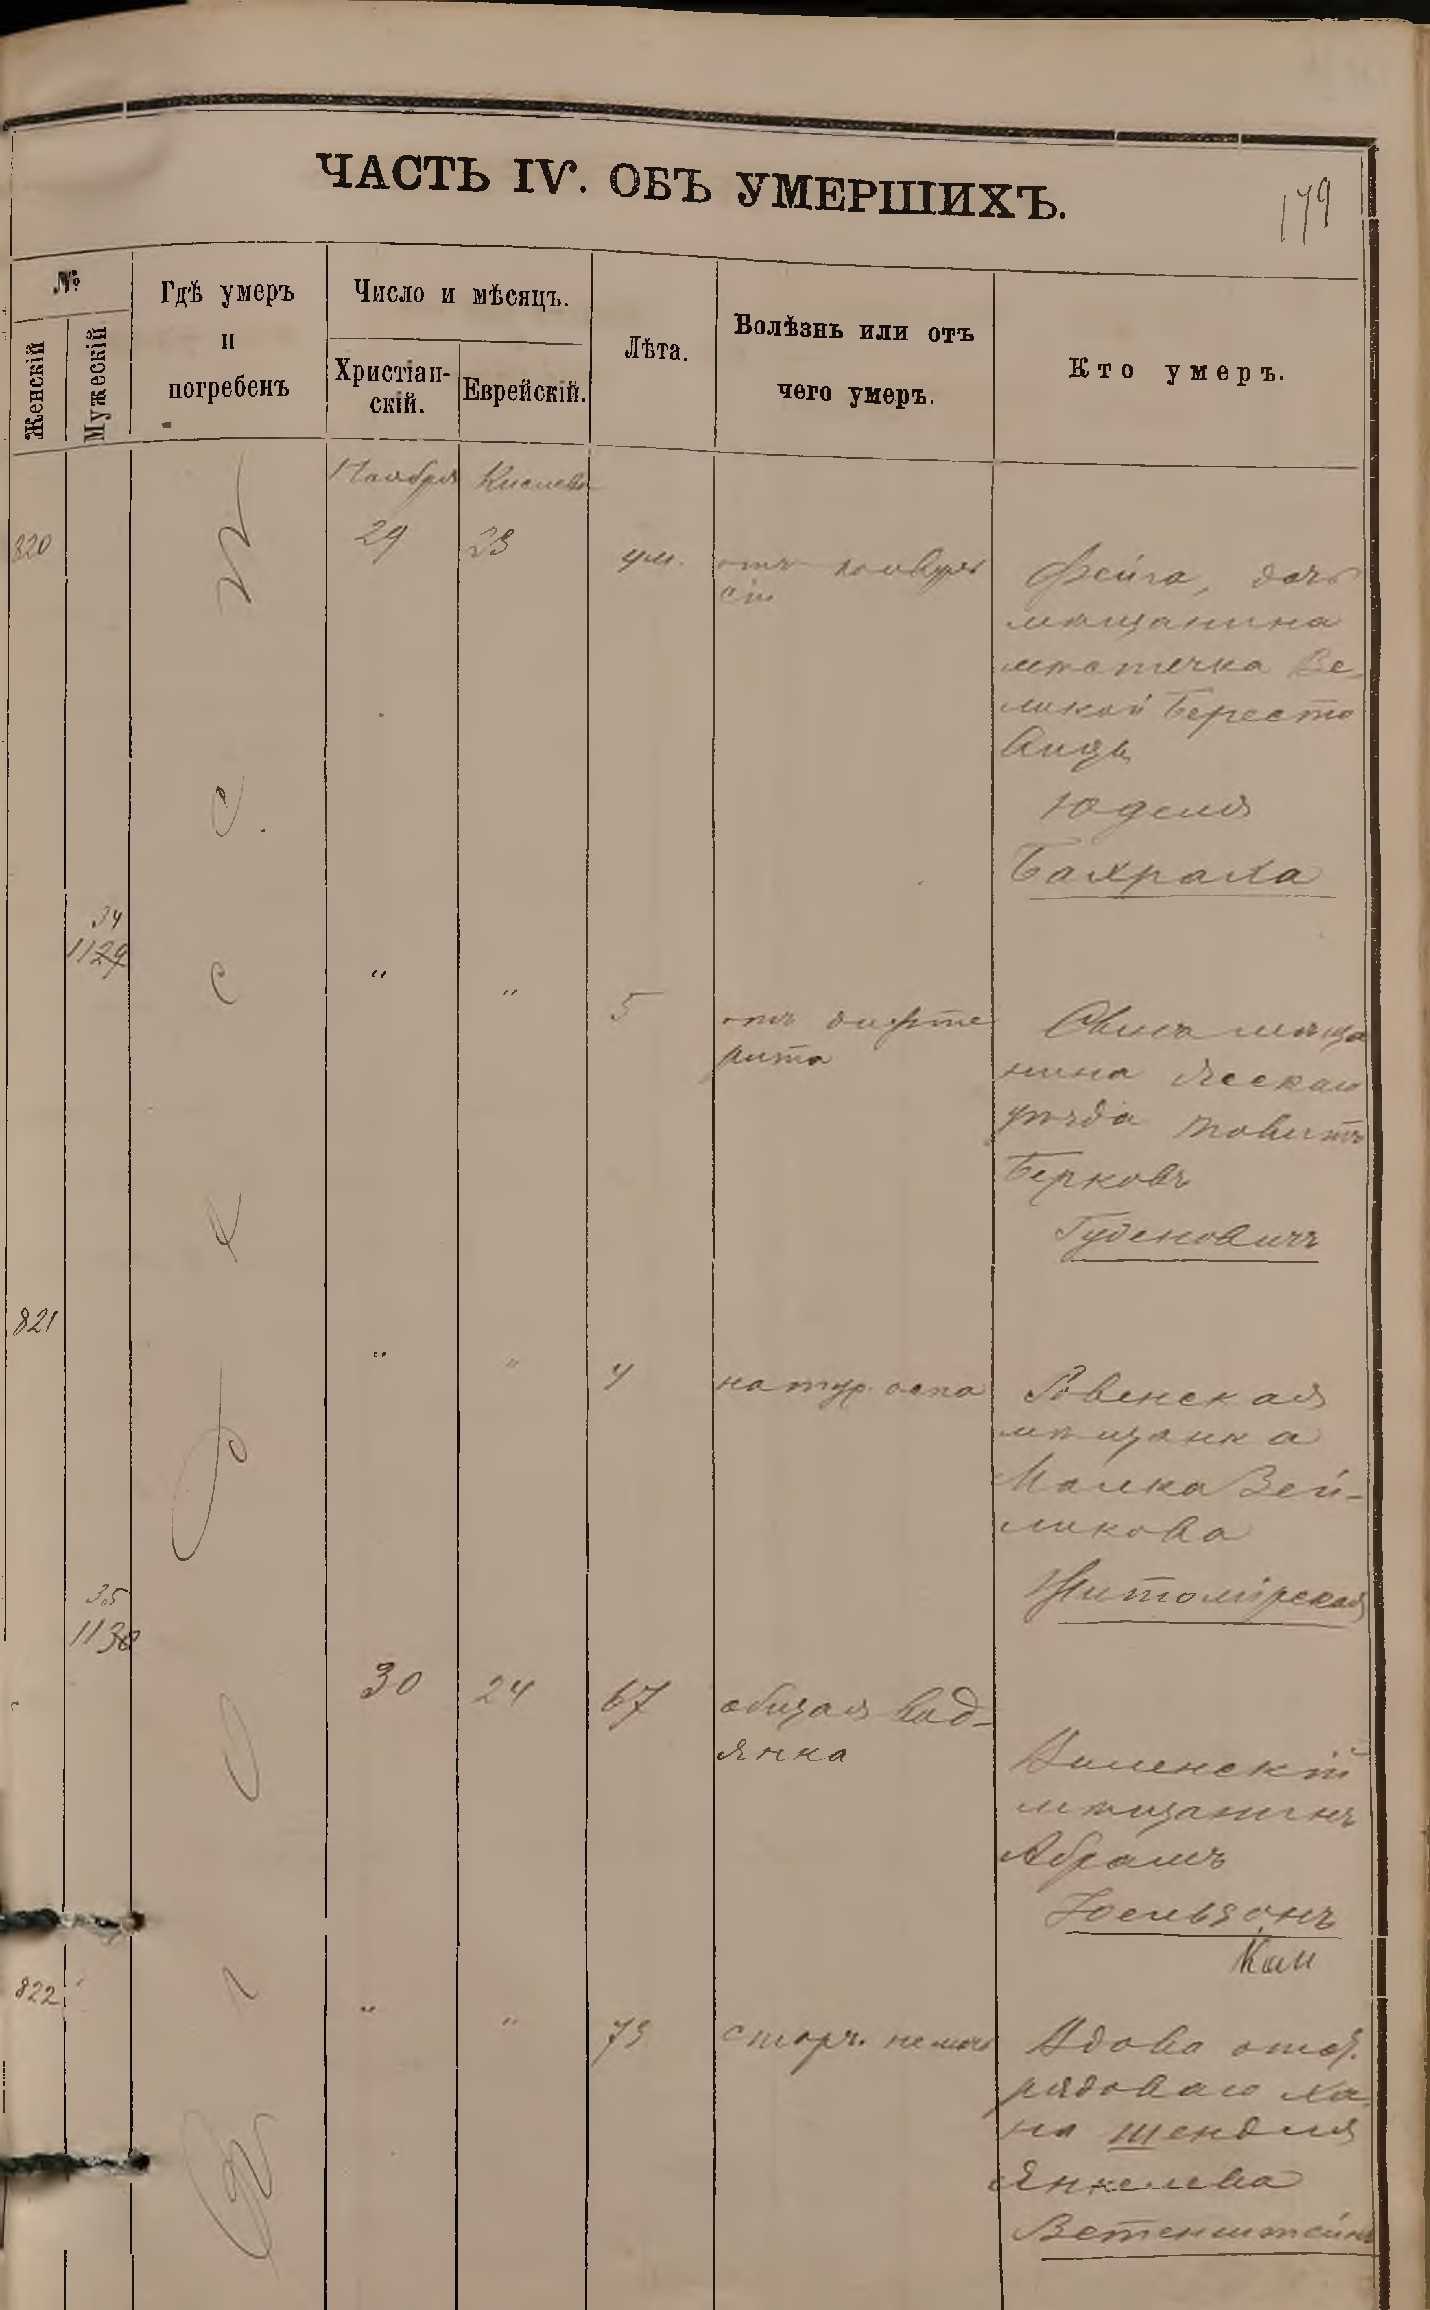 ЧАСТЬ IV. ОБЪ УМЕРШИХЪ.
179
№
Женскій
Мужескій
Гдѣ умеръ
и
погребенъ
Число и мѣсяцъ.
Христіан-
скій.
Еврейскій.
Лѣта.
Болѣзнь или отъ
чего умеръ.
Кто умеръ.
Ноября Кислева
820
29
23
ум.
отъ конвуль
сіи
Фейга, дочь
мѣщанина
мѣстечка Ве-
ликой Бересто
вицы
Юделя
Бахраха
34
1129
"
"
5
отъ дифте
рита
Сынъ мѣща
нина Ясскаго
уѣзда
Берковъ
Гуденовичъ
821
"
"
4
натур. оспа
Ровенская
мѣщанка
Малка Зей-
ликова
Житомірская
35
1130
30
24
67
общая вод-
янка
Виленскій
мѣщанинъ
Абрамъ
Іоельзонъ
Кац
822
"
"
73
старч. немочь
Вдова отст.
рядоваго Ха
на Шендля
Янкелева
Ветенштейнъ
Одесс